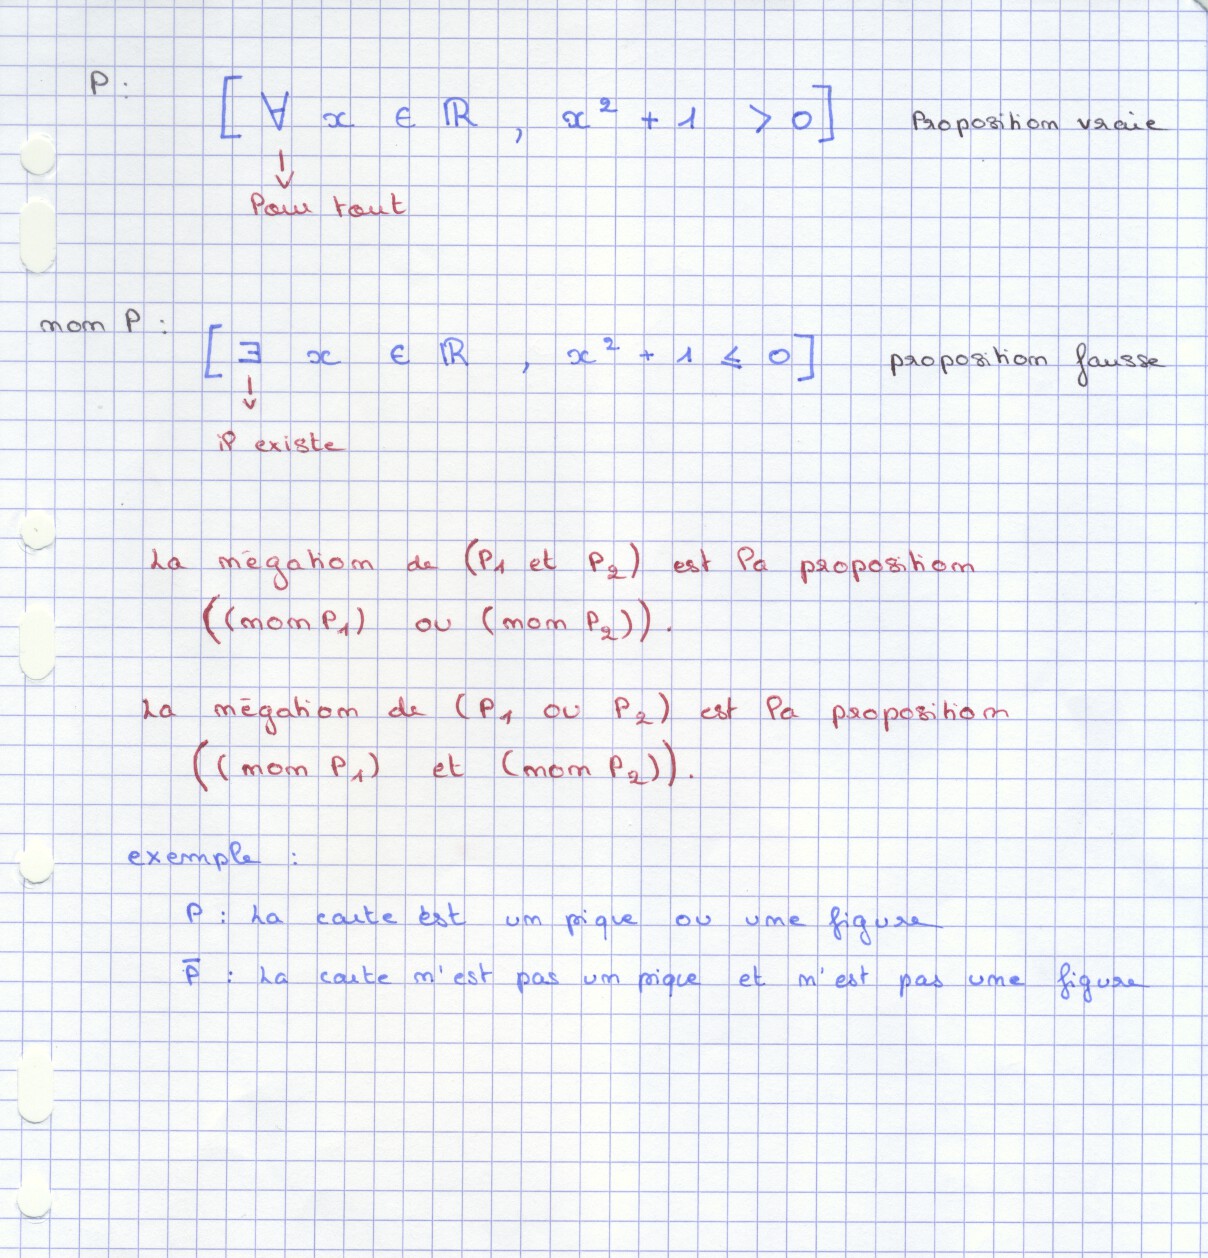 P : [ ∀ x ∈ ℝ , x² + 1 > 0 ] Proposition vraie
↓
Pour tout
non P : [ ∃ x ∈ ℝ , x² + 1 ≤ 0 ] proposition fausse
↓
il existe
La négation de (P₁ et P₂) est la proposition
((non P₁) ou (non P₂)).
La négation de (P₁ ou P₂) est la proposition
((non P₁) et (non P₂)).
exemple :
P : La carte est un pique ou une figure
P̅ : La carte n'est pas un pique et n'est pas une figure